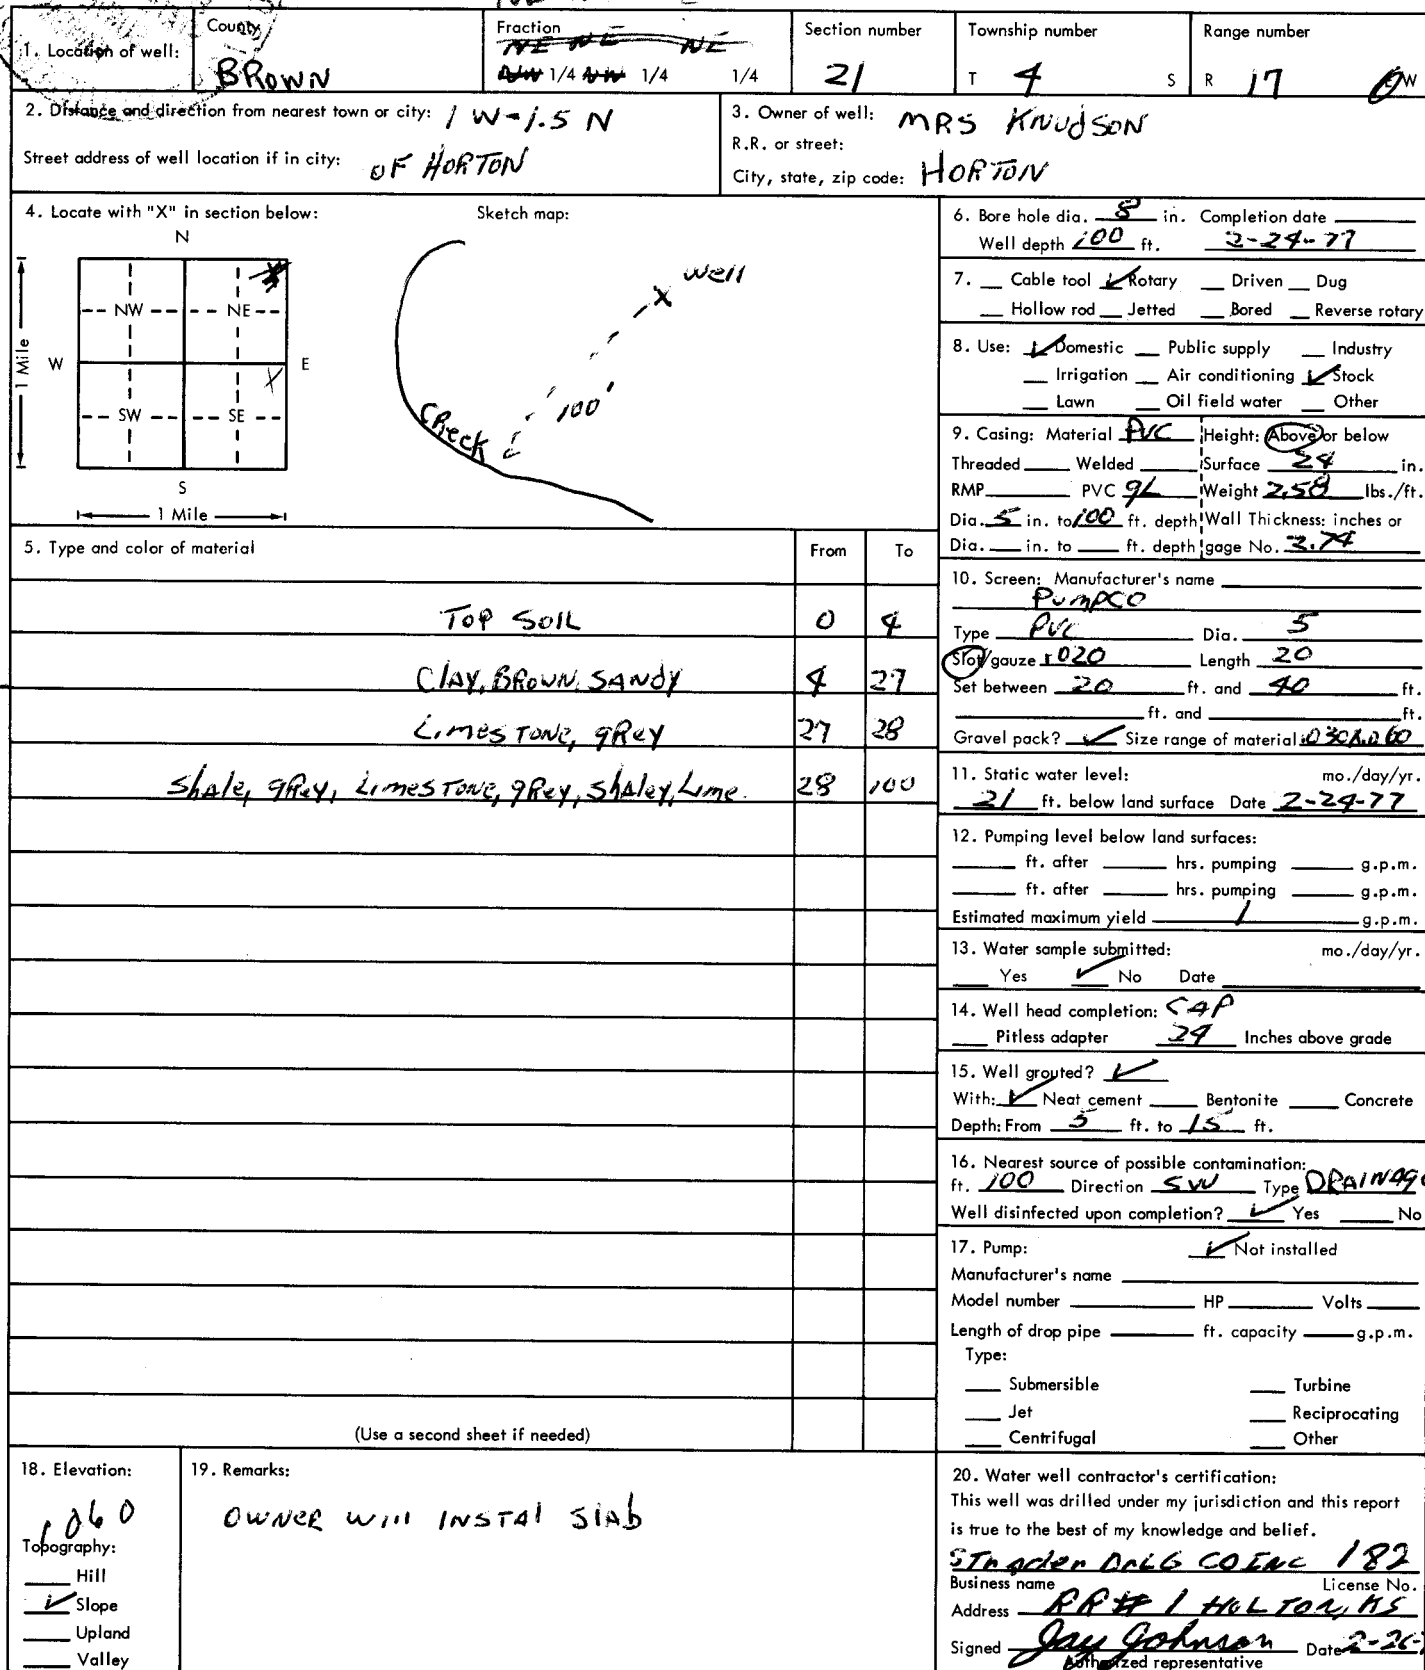 1. Location of well:
County
BROWN
Fraction
NE NE NE
NW 1/4 NW 1/4 1/4
Section number
21
Township number
T 4 S
Range number
R 17 E/W
2. Distance and direction from nearest town or city: 1 W-1.5 N
Street address of well location if in city: OF HORTON
3. Owner of well: MRS KNUDSON
R.R. or street:
City, state, zip code: HORTON
4. Locate with "X" in section below:
N
NW NE
W E
1 Mile
SW SE
S
1 Mile
Sketch map:
X well
100'
CReek
5. Type and color of material From To
TOP SOIL 0 4
CLAY, BROWN, SANDY 4 27
LIMESTONE, gRey 27 28
ShAle, gRey, LIMESTONE, gRey, ShAley, Lime. 28 100
(Use a second sheet if needed)
6. Bore hole dia. 8 in. Completion date
Well depth 100 ft. 2-24-77
7. Cable tool ✓ Rotary Driven Dug
Hollow rod Jetted Bored Reverse rotary
8. Use: ✓ Domestic Public supply Industry
Irrigation Air conditioning ✓ Stock
Lawn Oil field water Other
9. Casing: Material PVC Height: Above or below
Threaded Welded Surface 24 in.
RMP PVC GL Weight 2.58 lbs./ft.
Dia. 5 in. to 100 ft. depth Wall Thickness: inches or
Dia. in. to ft. depth gage No. 2.74
10. Screen: Manufacturer's name
PUMPCO
Type PVC Dia. 5
Slot/gauze .020 Length 20
Set between 20 ft. and 40 ft.
ft. and ft.
Gravel pack? ✓ Size range of material
11. Static water level: mo./day/yr.
21 ft. below land surface Date 2-24-77
12. Pumping level below land surfaces:
ft. after hrs. pumping g.p.m.
ft. after hrs. pumping g.p.m.
Estimated maximum yield 1 g.p.m.
13. Water sample submitted: mo./day/yr.
Yes ✓ No Date
14. Well head completion: CAP
Pitless adapter 24 Inches above grade
15. Well grouted? ✓
With: ✓ Neat cement Bentonite Concrete
Depth: From 5 ft. to 15 ft.
16. Nearest source of possible contamination:
ft. 100 Direction SW Type DRAINAge
Well disinfected upon completion? ✓ Yes No
17. Pump: ✓ Not installed
Manufacturer's name
Model number HP Volts
Length of drop pipe ft. capacity g.p.m.
Type:
Submersible Turbine
Jet Reciprocating
Centrifugal Other
18. Elevation:
1060
Topography:
Hill
✓ Slope
Upland
Valley
19. Remarks:
OWNER WILL INSTAL SlAb
20. Water well contractor's certification:
This well was drilled under my jurisdiction and this report
is true to the best of my knowledge and belief.
CO INC 182
Business name License No.
Address RR# 1 HOLTON, KS
Signed Jay Johnson Date 2-26-
Authorized representative